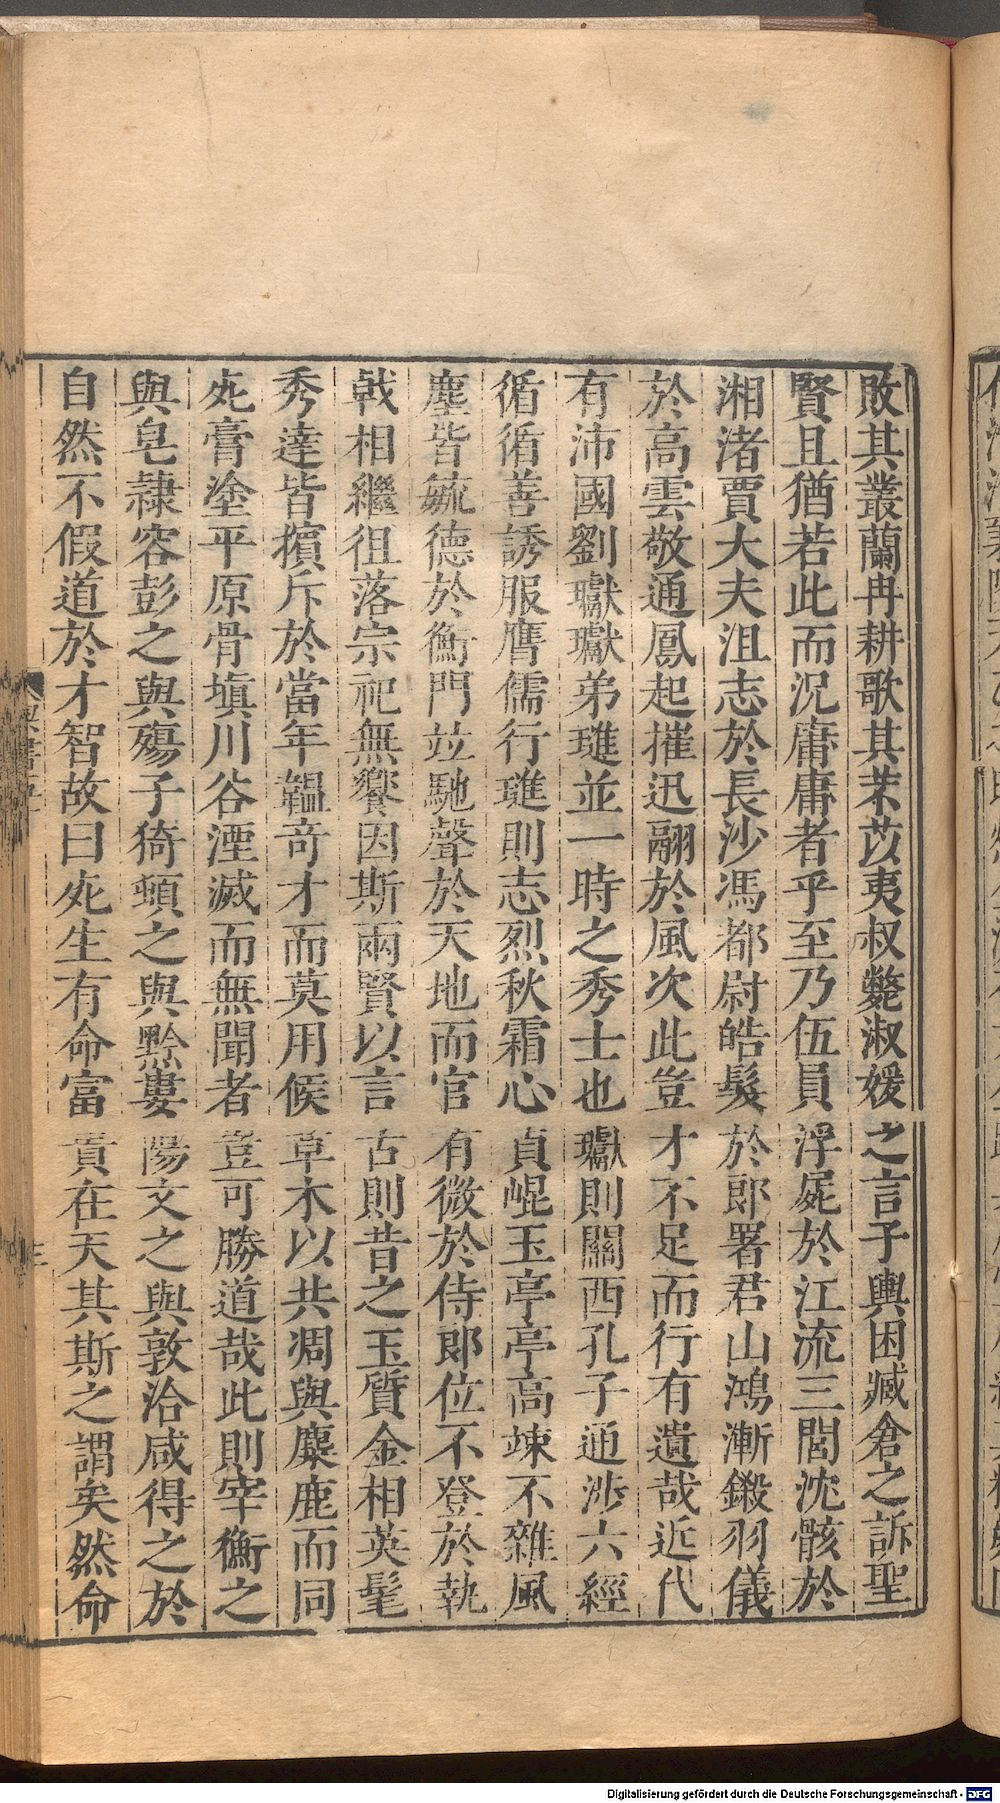 敗其叢蘭冉耕歌其芣苡夷叔斃淑媛之言子輿困臧倉之訴聖
賢且猶若此而況庸庸者乎至乃伍員浮屍於江流三閭沈骸於
湘渚賈大夫沮志於長沙馮都尉皓髮於郎署君山鴻漸鎩羽儀
於高雲敬通鳳起摧迅翮於風次此豈才不足而行有遺哉近代
有沛國劉瓛瓛弟璡並一時之秀士也瓛則關西孔子通涉六經
循循善誘服膺儒行璡則志烈秋霜心貞崐玉亭亭高竦不雜風
塵皆毓德於衡門竝馳聲於天地而官有微於侍郎位不登於執
戟相繼徂落宗祀無饗因斯兩賢以言古則昔之玉質金相英髦
秀達皆擯斥於當年韞奇才而莫用候草木以共凋與麋鹿而同
死膏塗平原骨填川谷湮滅而無聞者豈可勝道哉此則宰衡之
與皂隸容彭之與殤子猗頓之與黔婁陽文之與敦洽咸得之於
自然不假道於才智故曰死生有命富貴在天其斯之謂矣然命
Digitalisierung gefördert durch die Deutsche Forschungsgemeinschaft - DFG